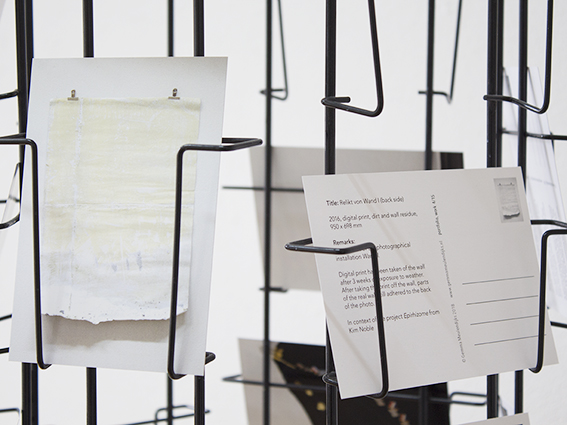 Title: Relikt von Wand I (back side)
2016, digital print, dirt and wall residue,
950 x 698 mm
Remarks:
photographical
installation
Digital print has been taken of the wall
after 3 weeks exposure to weather.
After taking the print off the wall, parts
of the real wall still adhered to the back
of the photo.
In context of the project Epirhizome from
Kim Noble